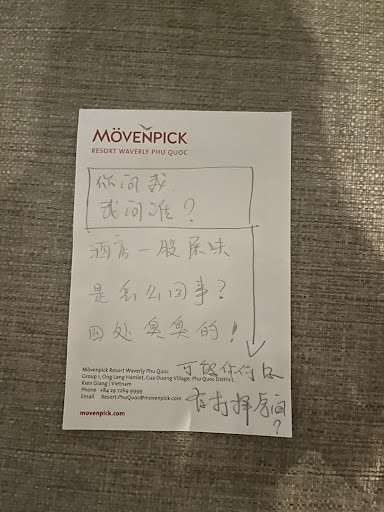 MÖVENPICK
RESORT WAVERLY PHU QUOC
你问我
我问谁?
酒店一股屎味
是怎么回事?
四处臭臭的!
可能你们没
有打掃房间
?
Mövenpick Resort Waverly Phu Quoc
Group 1, Ong Lang Hamlet, Cua Duong Village, Phu Quoc District,
Kien Giang | Vietnam
Phone +84 29 7269 9999
Email Resort.PhuQuoc@movenpick.com
movenpick.com